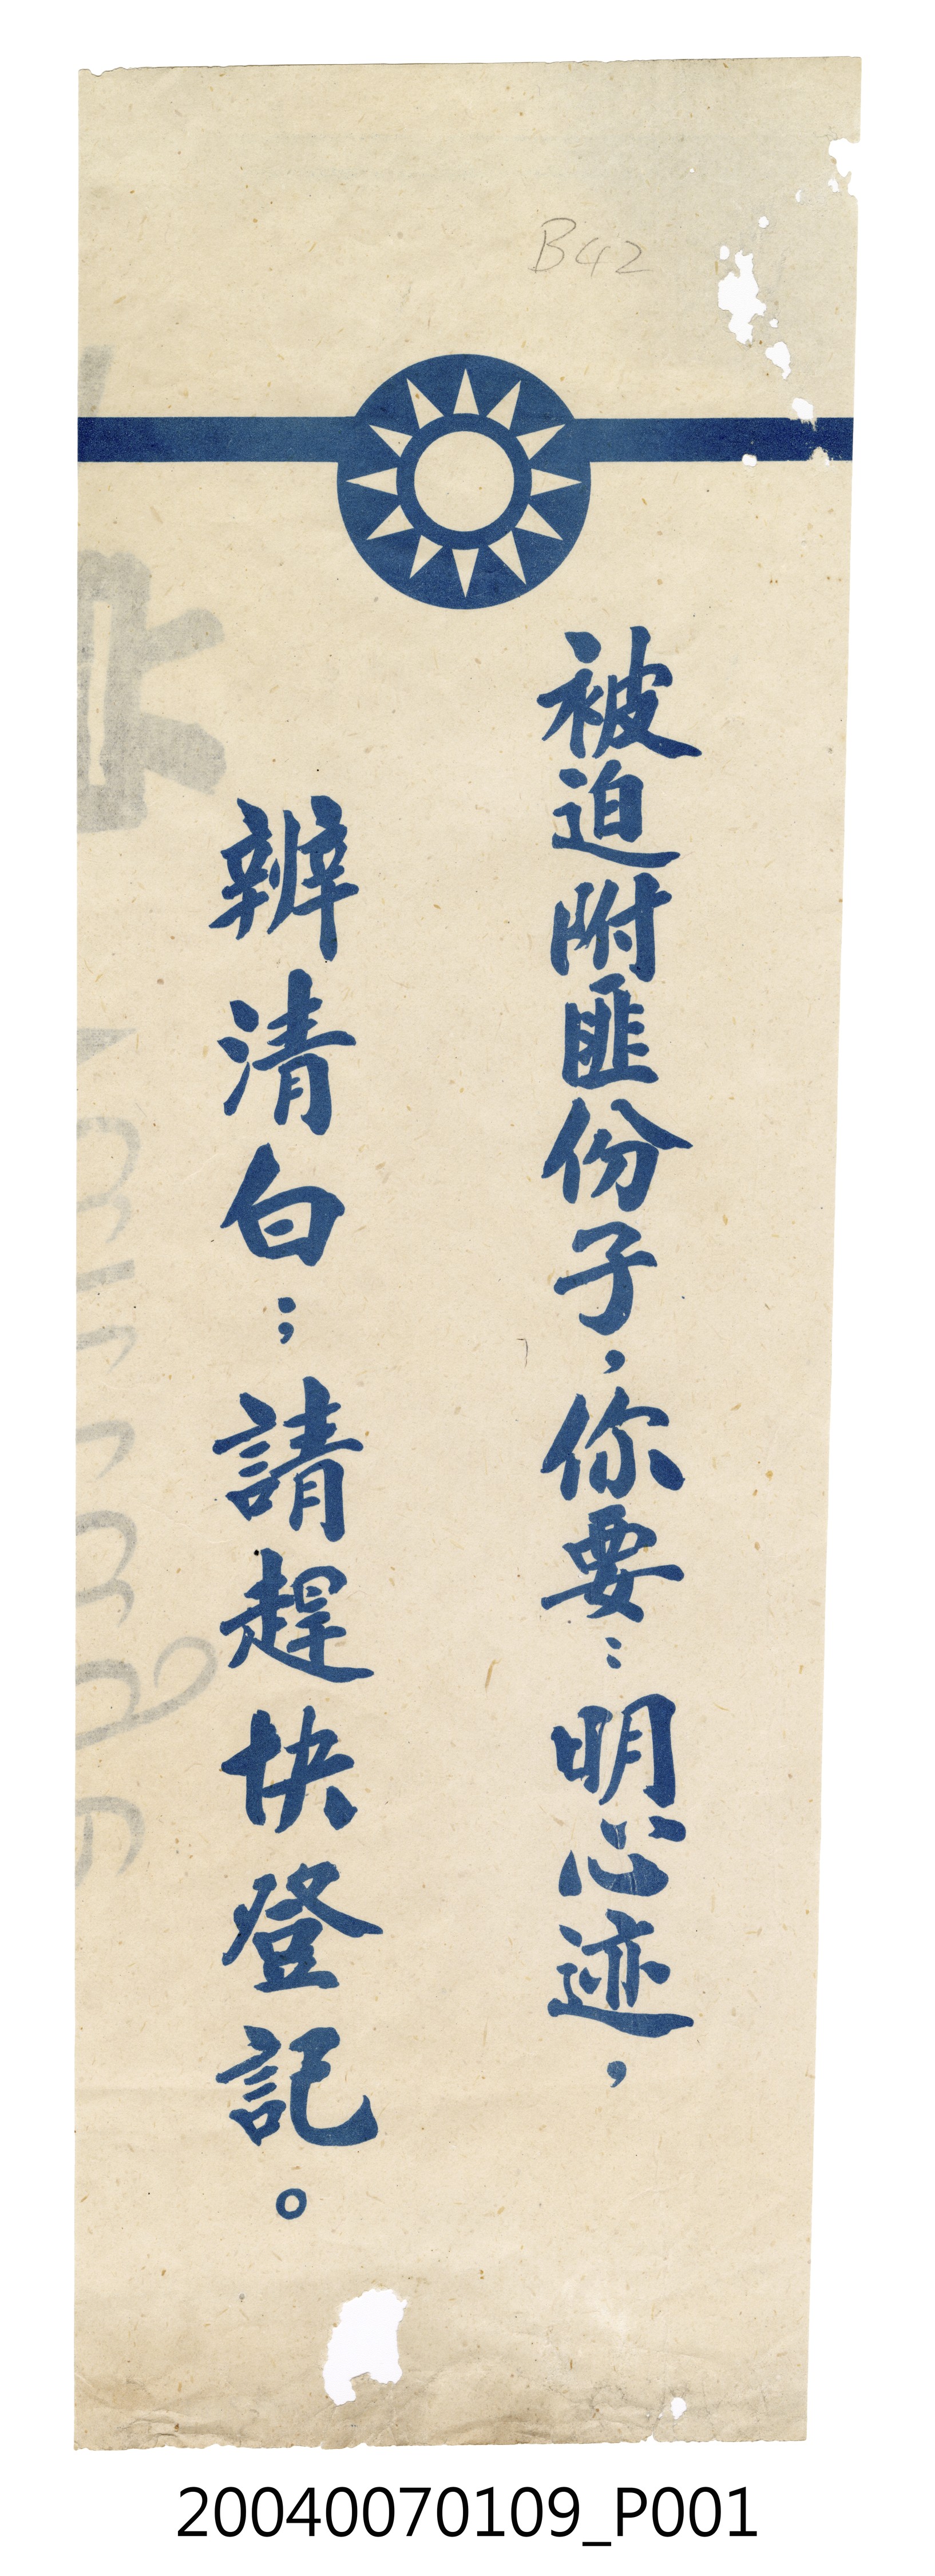 B42
被迫附匪份子，你要：明心迹，
辨清白；請趕快登記。
20040070109_P001